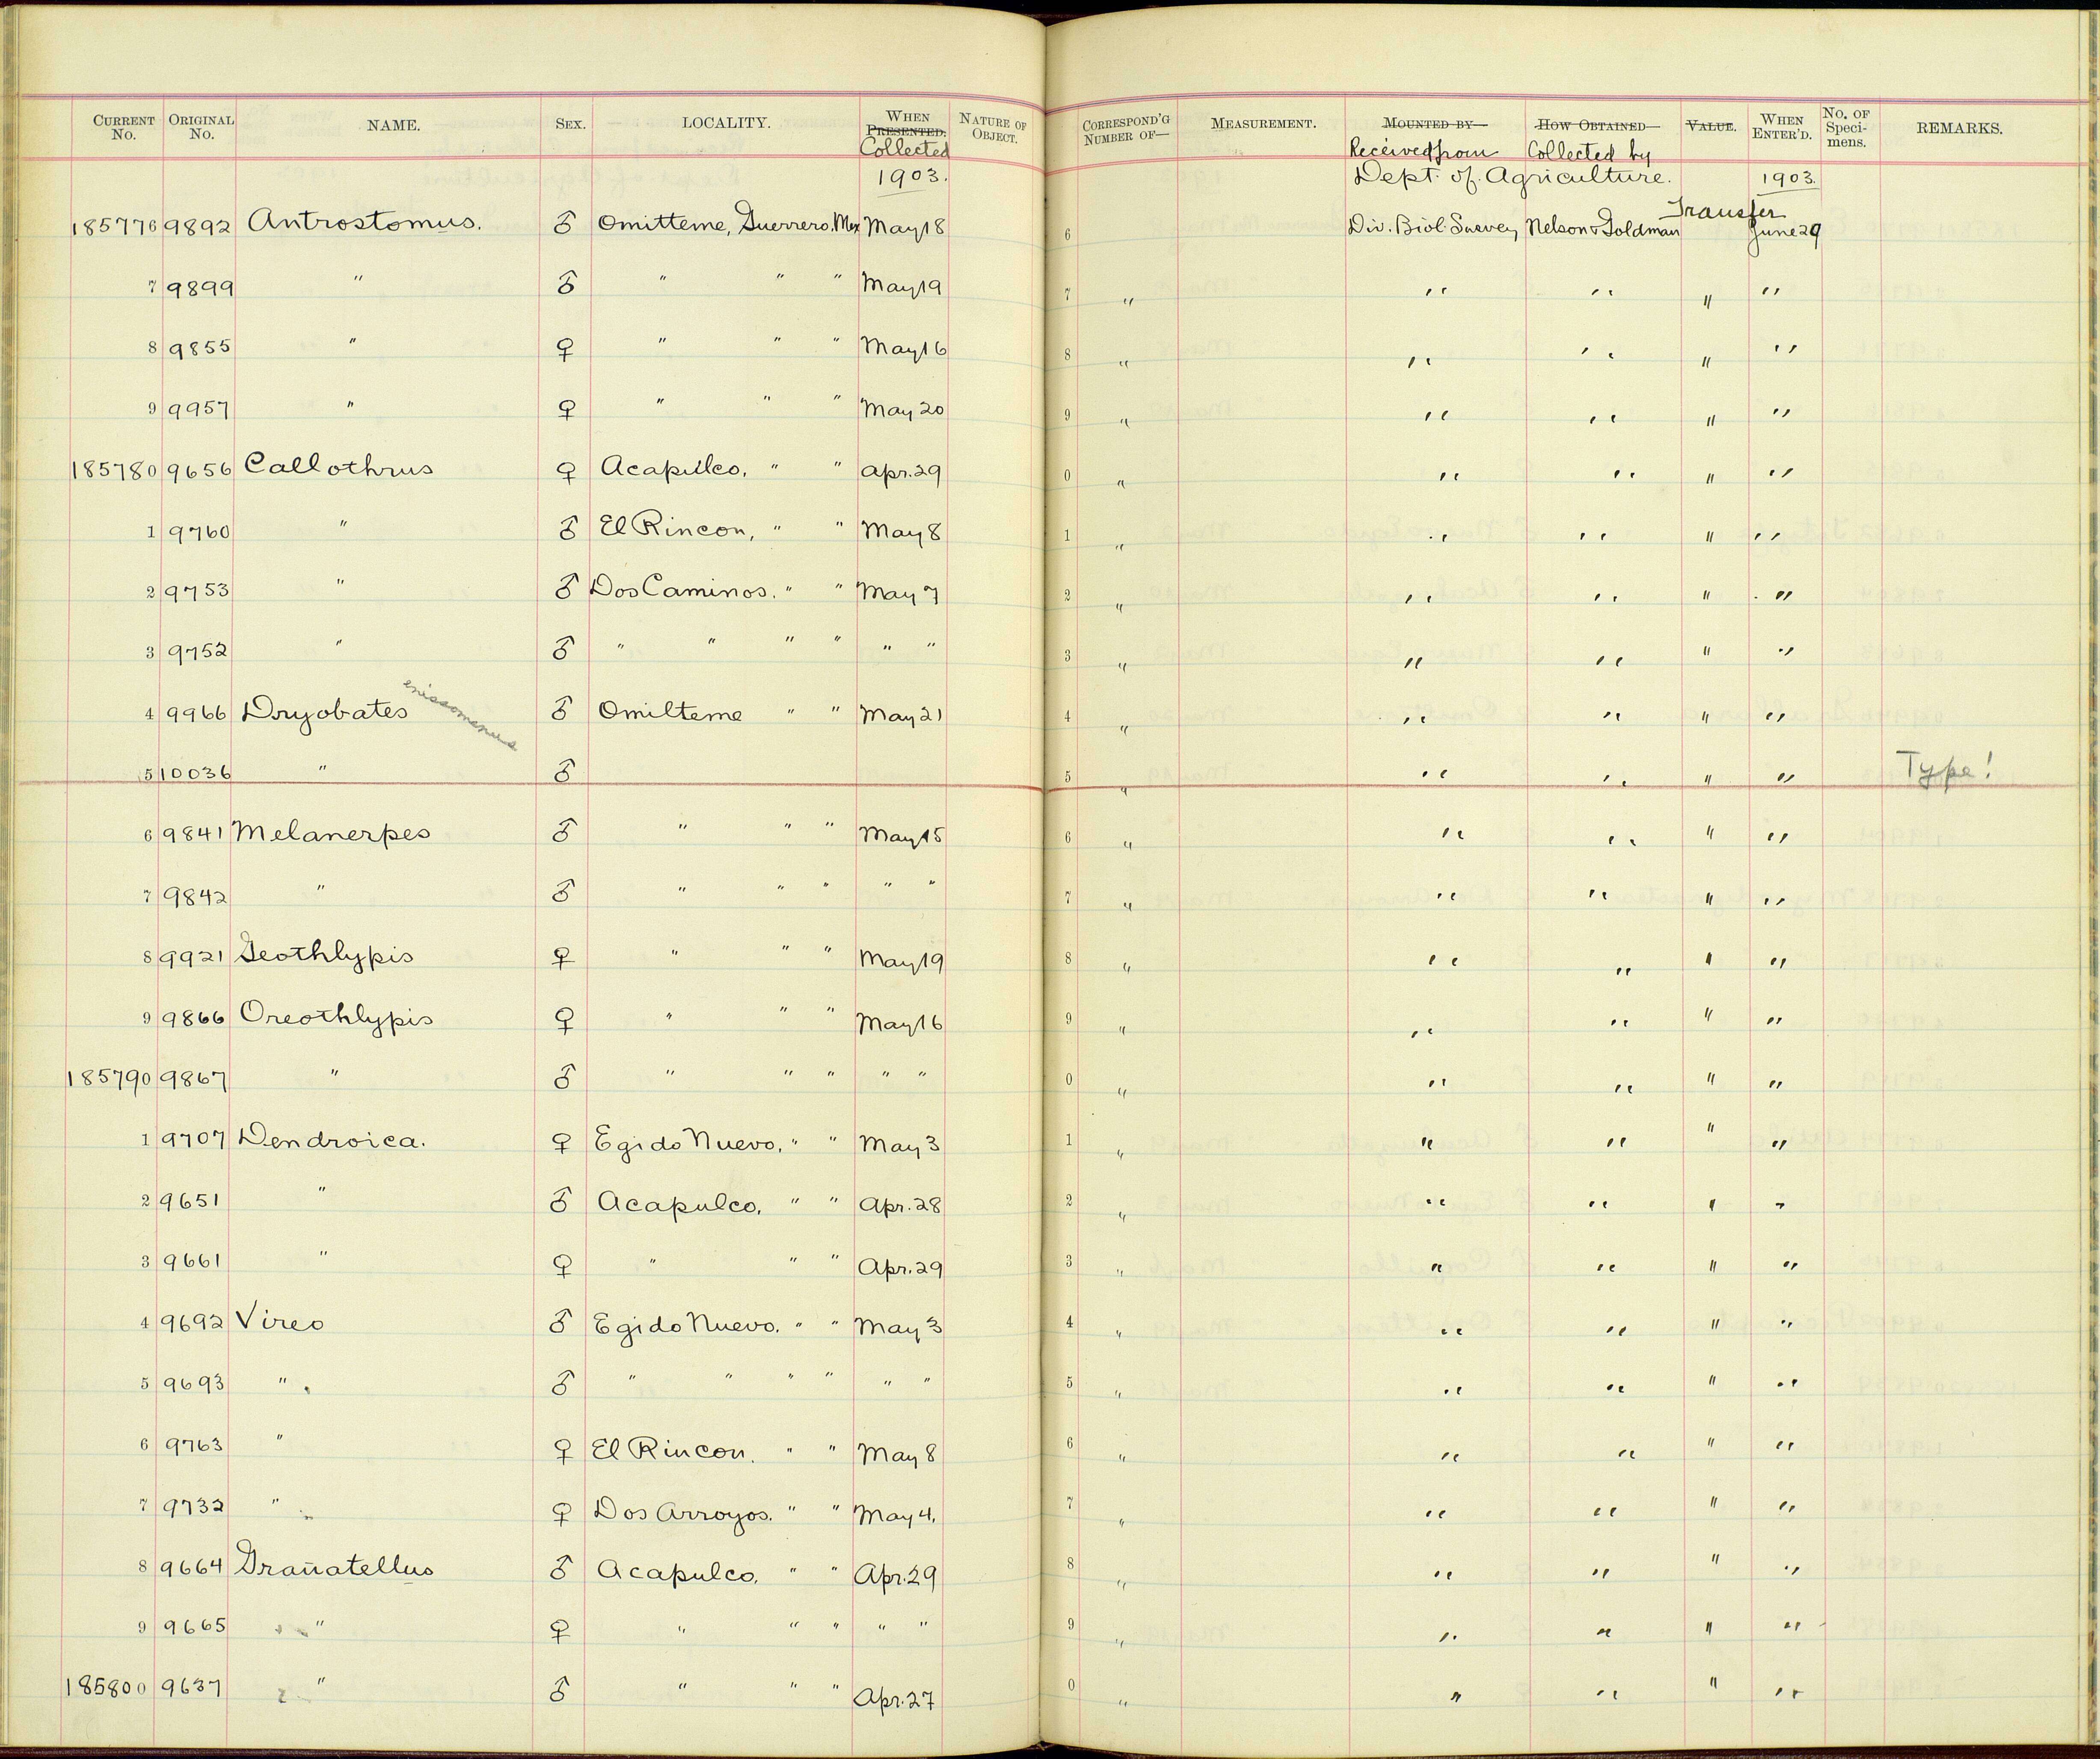 CURRENT No. ORIGINAL No. NAME. SEX. LOCALITY. WHEN PRESENTED. Collected NATURE OF OBJECT. CORRESPOND'G NUMBER OF— MEASUREMENT. MOUNTED BY— Received from HOW OBTAINED— Collected by VALUE. WHEN ENTER'D. No. OF Speci-mens. REMARKS.
1903. Dept. of Agriculture. 1903.
185776 9892 Antrostomus. ♂ Omitteme, Guerrero. Mex May 18 6 Div. Biol. Survey Nelson & Goldman Transfer June 29
7 9899 " ♂ " " " May 19 7 " " " " "
8 9855 " ♀ " " " May 16 8 " " " " "
9 9957 " ♀ " " " May 20 9 " " " " "
185780 9656 Callothrus ♀ Acapulco, " " Apr. 29 0 " " " " "
1 9760 " ♂ El Rincon, " " May 8 1 " " " " "
2 9753 " ♂ Dos Caminos. " " May 7 2 " " " " "
3 9752 " ♂ " " " " " " 3 " " " " "
4 9966 Dryobates enissomenus ♂ Omilteme " " May 21 4 " " " " "
5 10036 " ♂ 5 " " " " " Type!
6 9841 Melanerpes ♂ " " " May 15 6 " " " " "
7 9842 " ♂ " " " " " 7 " " " " "
8 9921 Geothlypis ♀ " " " May 19 8 " " " " "
9 9866 Oreothlypis ♀ " " " May 16 9 " " " " "
185790 9867 " ♂ " " " " " 0 " " " " "
1 9707 Dendroica. ♀ Egido Nuevo, " " May 3 1 " " " " "
2 9651 " ♂ Acapulco, " " Apr. 28 2 " " " " "
3 9661 " ♀ " " " Apr. 29 3 " " " " "
4 9692 Vireo ♂ Egido Nuevo. " " May 3 4 " " " " "
5 9693 " ♂ " " " " " " 5 " " " " "
6 9763 " ♀ El Rincon. " " May 8 6 " " " " "
7 9732 " ♀ Dos Arroyos. " " May 4. 7 " " " " "
8 9664 Granatellus ♂ Acapulco. " " Apr. 29 8 " " " " "
9 9665 " ♀ " " " " " 9 " " " " "
185800 9637 " ♂ " " " Apr. 27 0 " " " " "